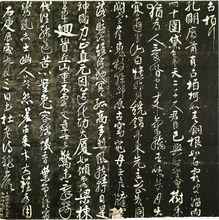 古柏行
孔明廟前有古柏柯如青銅根如石霜皮溜雨
四十圍黛色參天二千尺君臣已與時際會樹木
猶為人愛惜雲來氣接巫峽長月出
寒通雪山白憶昨路繞錦亭東先主武侯
同閟宮崔嵬枝幹郊原古窈窕丹青戶牖空落
落盤踞雖得地冥冥孤高多烈風扶持自是
神明力正直元因造化功大廈如傾要梁棟
萬牛迴首丘山重不露文章世已驚未辭剪
伐誰能送苦心豈免容螻蟻香葉終經宿
鸞鳳志士幽人莫怨嗟古來材大難為用